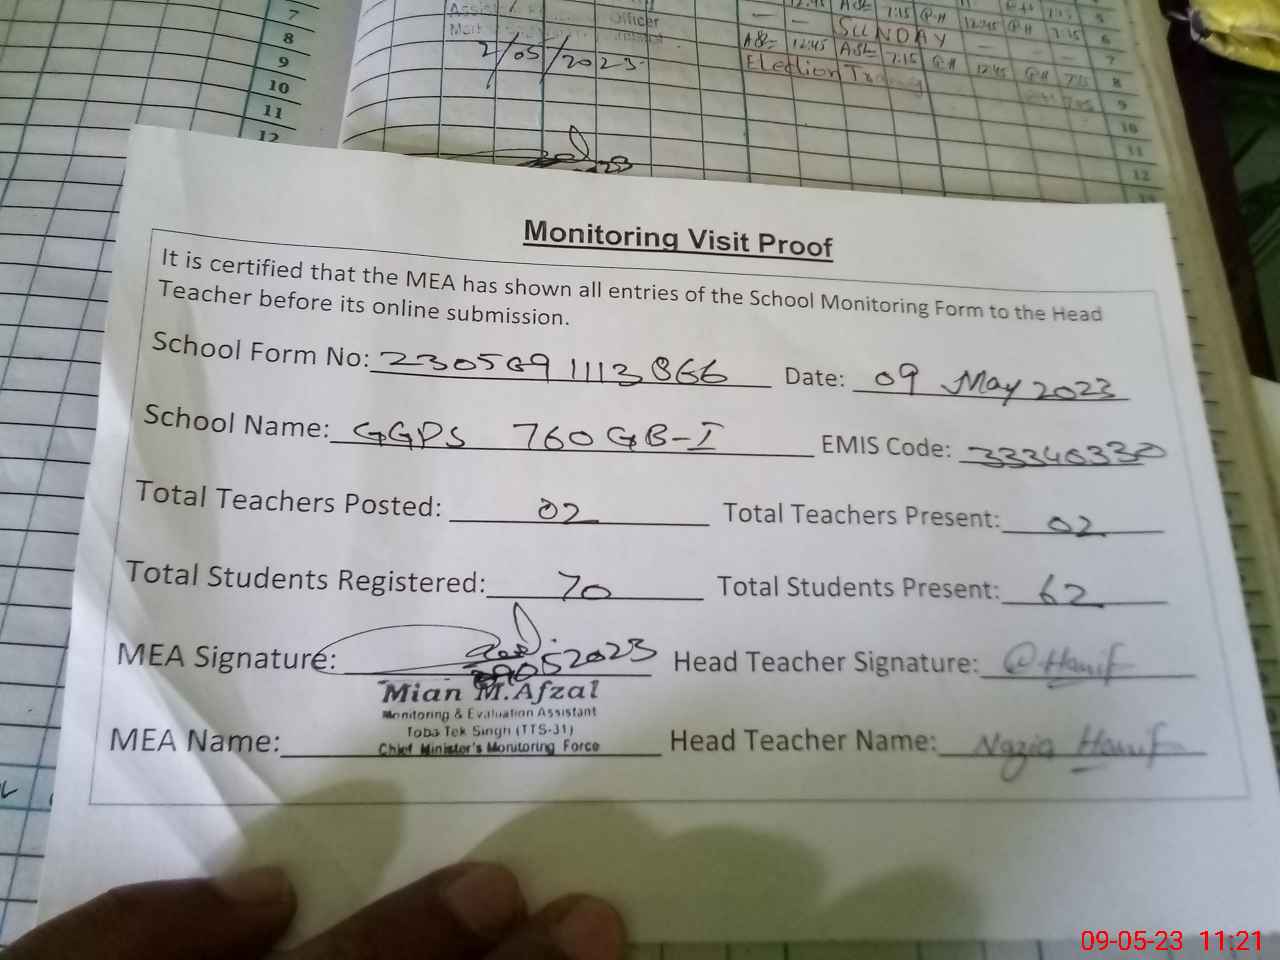 7
8
9
10
11
12
Officer
2/05/2023
12:45 A&L 7:15 @H 12:45 @H 7:15
SUNDAY
A&L 12:45 A&L 7:15 @H 12:45 @H 7:15
Election Training
5
6
7
8
9
10
11
12
Monitoring Visit Proof
It is certified that the MEA has shown all entries of the School Monitoring Form to the Head
Teacher before its online submission.
School Form No: 2305091113866 Date: 09 May 2023
School Name: GGPS 760 GB-I EMIS Code: 33340330
Total Teachers Posted: 02 Total Teachers Present: 02
Total Students Registered: 70 Total Students Present: 62
MEA Signature: 09052023 Head Teacher Signature: @Hanif
Mian M.Afzal
Monitoring & Evaluation Assistant
Toba Tek Singh (TTS-31)
MEA Name: Chief Minister's Monitoring Force Head Teacher Name: Nazia Hanif
09-05-23 11:21